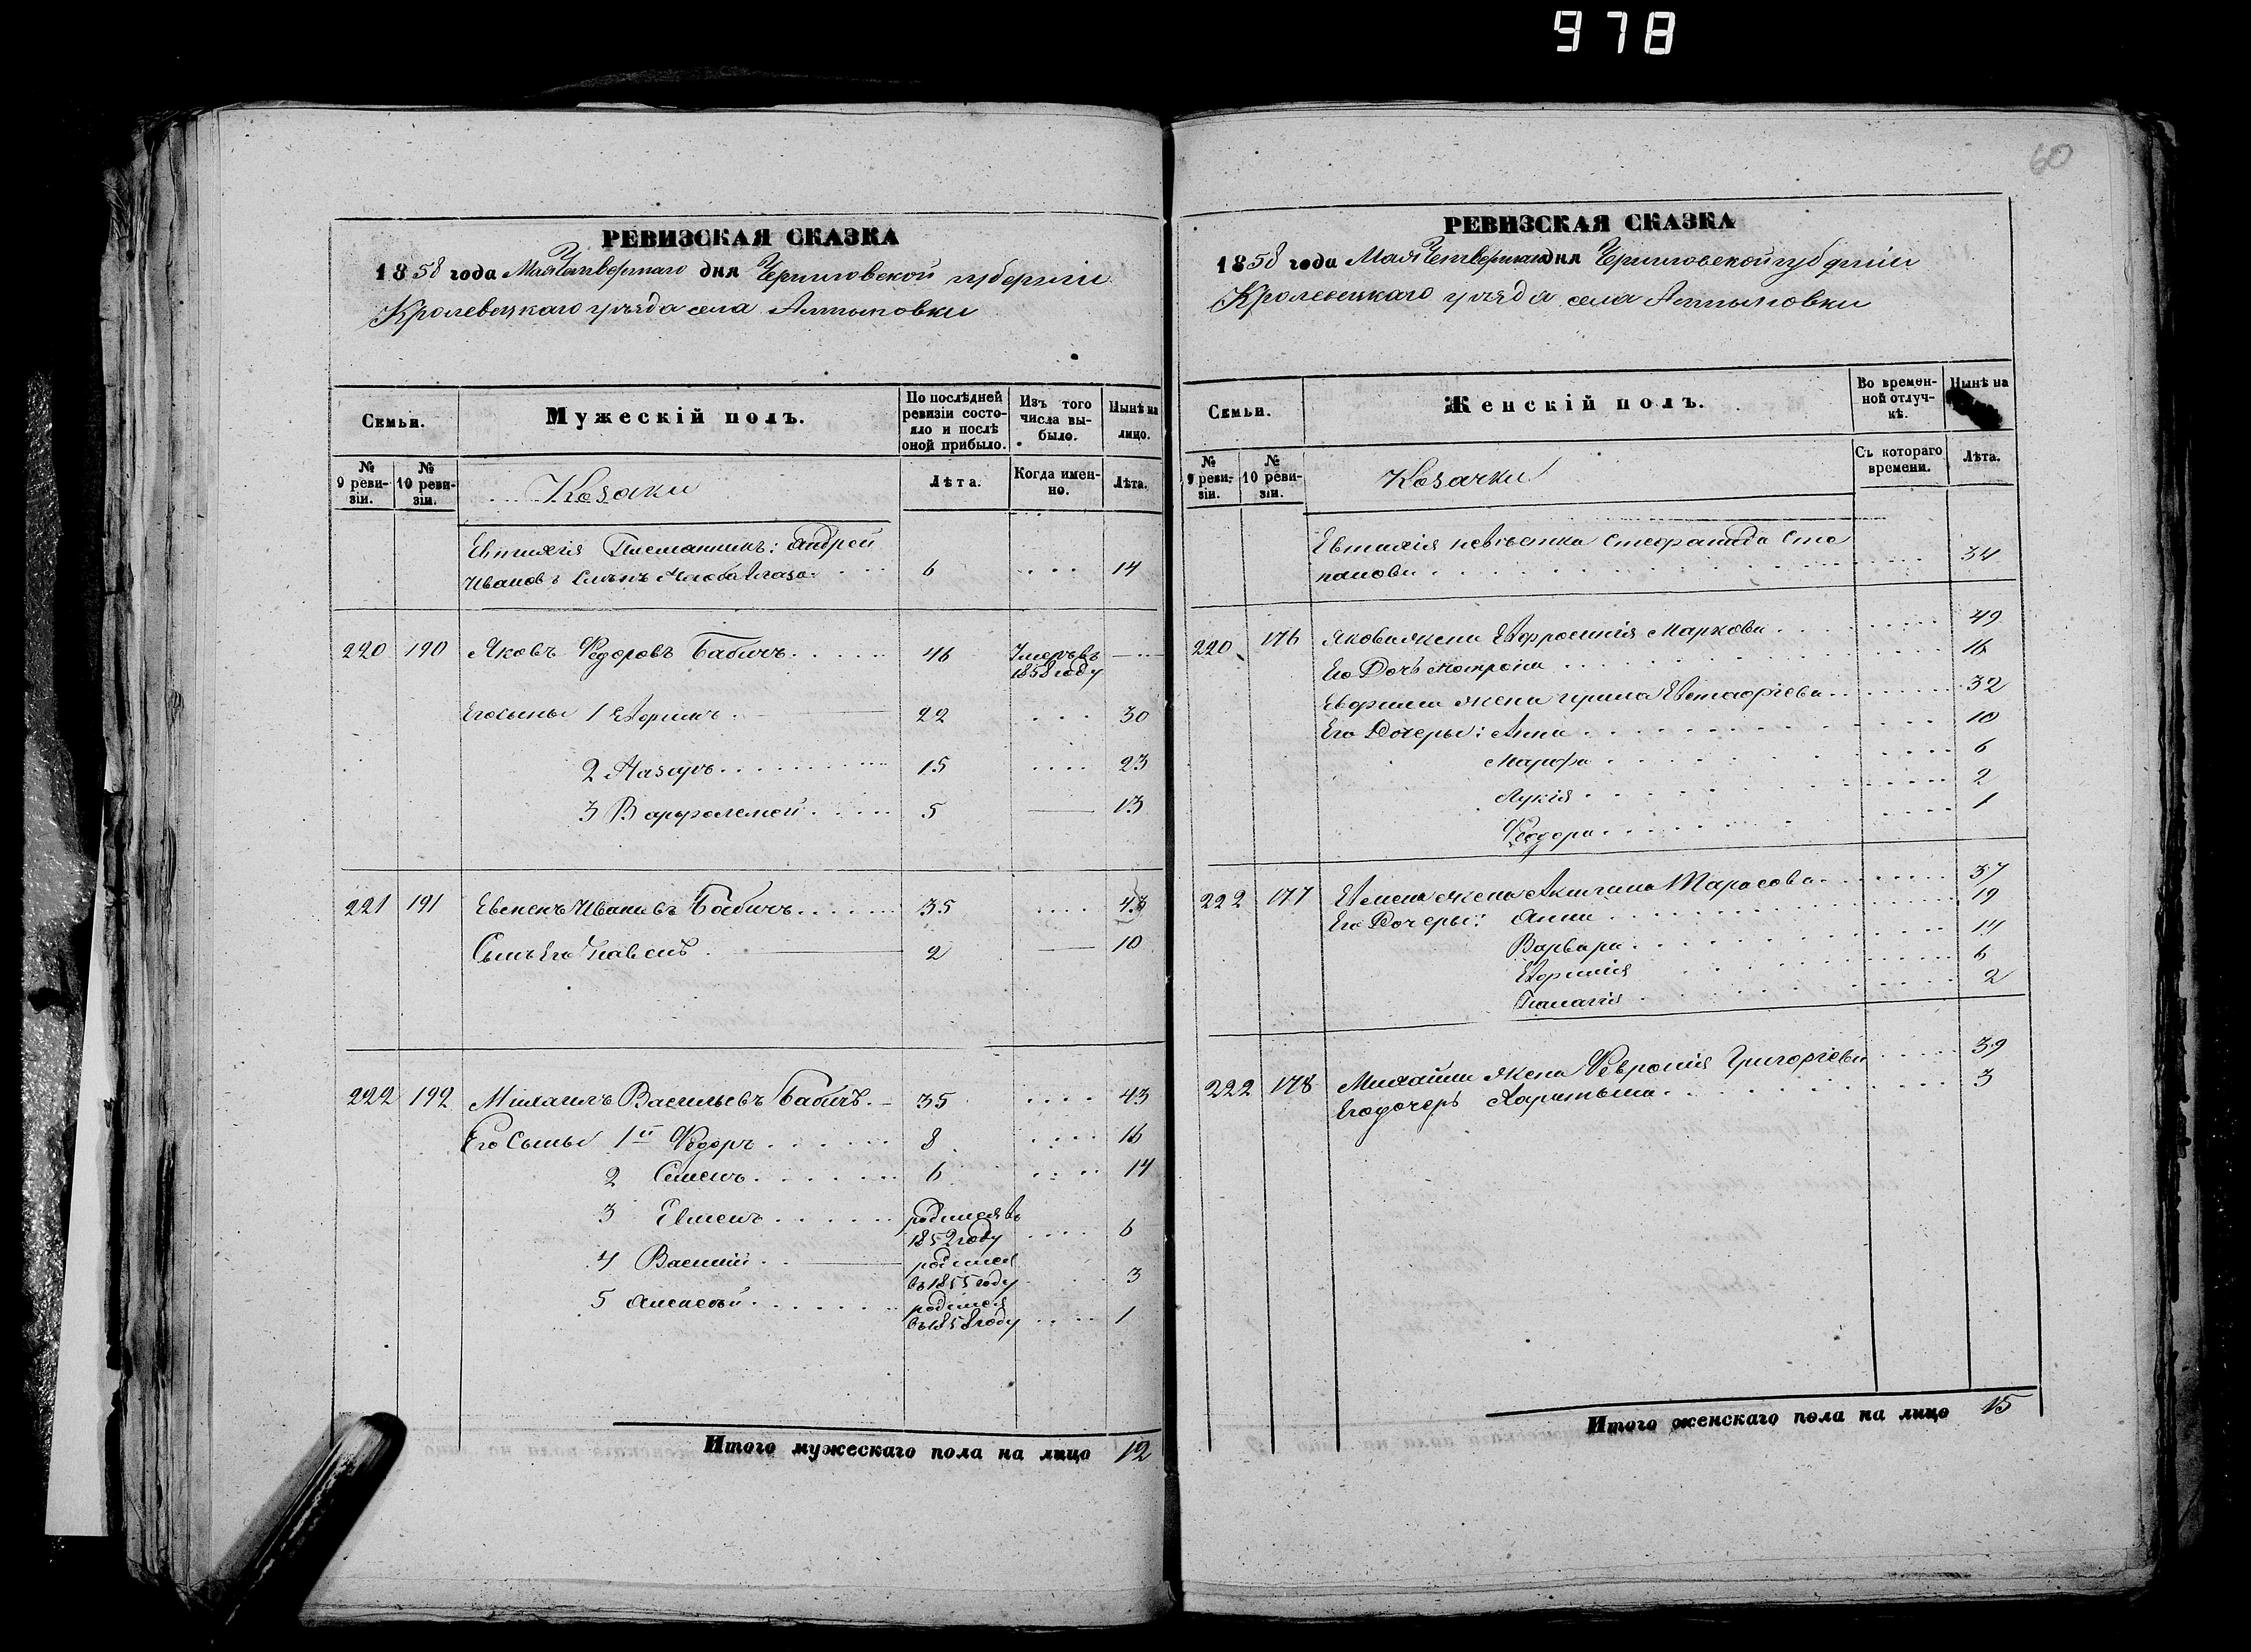 978
60
РЕВИЗСКАЯ СКАЗКА
1858 года Мая Четвертаго дня Черниговской губерніи
Кролевецкаго уѣзда села Алтыновки
Семьи.
Мужескій полъ.
По послѣдней ревизіи состояло и послѣ оной прибыло.
Изъ того числа выбыло.
Нынѣ на лицо.
№ 9 ревизіи.
№ 10 ревизіи.
Козаки
Лѣта.
Когда именно.
Лѣта.
Евтихія Племянникъ: Андрей
Ивановъ Сынъ 6 14
220 190 Яковъ Федоровъ Бабичъ 46 Умеръ въ 1858 году
Его сыны 1 Ефимъ 22 30
2 Назаръ 15 23
3 Варфоломей 5 13
221 191 Ивановъ Бабичъ 35 43
Сынъ Его Павелъ 2 10
222 192 Михаилъ Васильевъ Бабичъ 35 43
Его Сыны 1й Федоръ 8 16
2 Семенъ 6 14
3 Евменъ родился въ 1852 году 6
4 Василій родился въ 1855 году 3
5 Алексѣй родился въ 1858 году 1
Итого мужескаго пола на лицо 12
РЕВИЗСКАЯ СКАЗКА
1858 года Мая Четвертаго дня Черниговской губерніи
Кролевецкаго уѣзда села Алтыновки
Семьи.
Женскій полъ.
Во временной отлучкѣ.
Нынѣ на
№ 9 ревизіи.
№ 10 ревизіи.
Козачки
Съ котораго времени.
Лѣта.
Евтихія невѣстка Стефанида Сте
панова 34
220 176 Якова жена Ефросинія Маркова 49
Его Дочь Матрона 16
Ефима жена Ирина Евстафіева 32
Его Дочеры: Анна 10
Марфа 6
Лукія 2
Федора 1
222 177 жена Акилина Тарасова 37
Его Дочеры: Анна 19
Варвара 14
Ефимія 6
Пелагія 2
222 178 Михаила жена Февронія Григоріева 39
Его дочерь Харитына 3
Итого женскаго пола на лицо 15